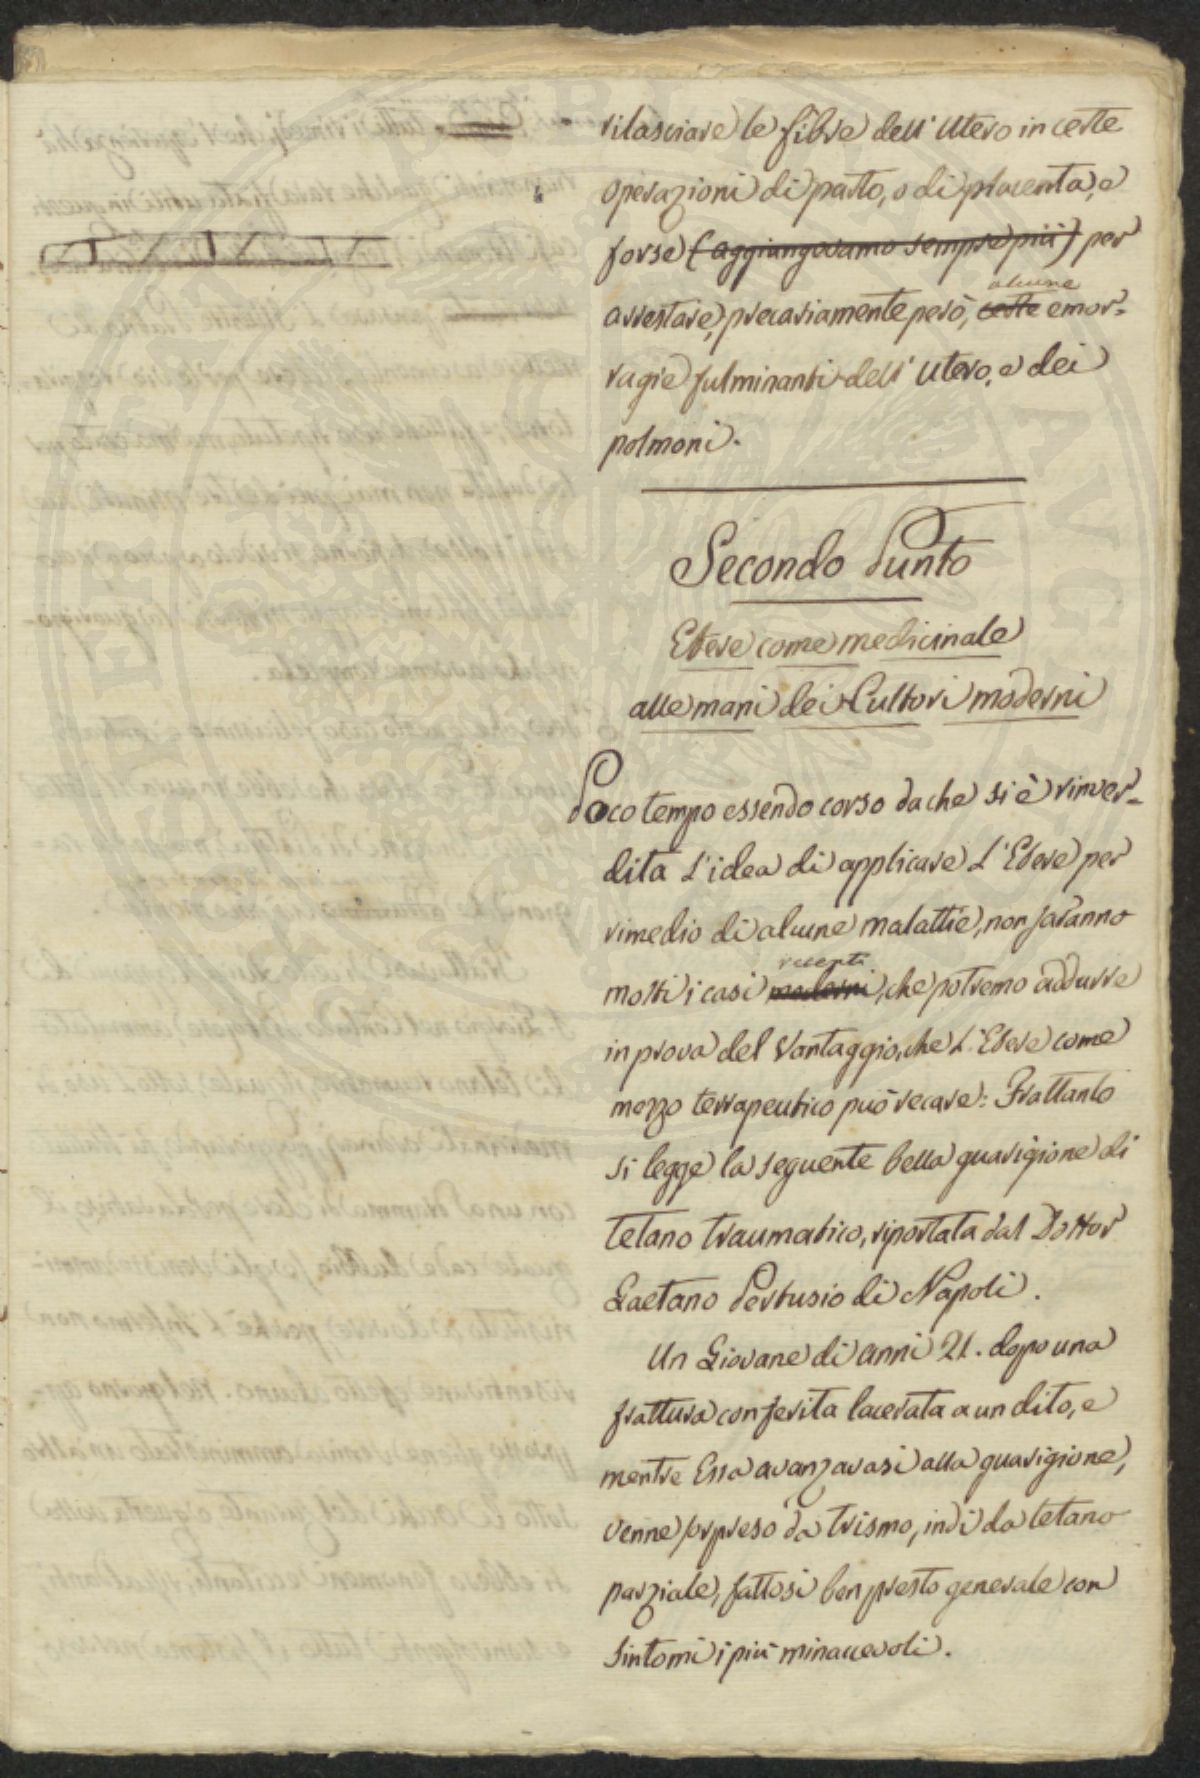 rilasciare le fibre dell'Utero in certe
operazioni di parto, o di placenta, e
forse (aggiungevamo sempre più) per
alcune
arrestare, precariamente però, certe emor-
ragie fulminanti dell'Utero, e dei
polmoni.
Secondo Punto
Etere come medicinale
alle mani dei Cultori moderni
Poco tempo essendo corso da che si è rinver-
dita l'idea di applicare l'Etere per
rimedio di alcune malattie, non saranno
recenti
molti i casi moderni, che potremo addurre
in prova del Vantaggio, che l'Etere come
mezzo terrapeutico può recare: Frattanto
si legge la seguente bella guarigione di
tetano traumatico, riportata dal Dottor
Gaetano Pertusio di Napoli.
Un Giovane di anni 21. dopo una
frattura con ferita lacerata a un dito, e
mentre Essa avanzavasi alla guarigione,
venne sorpreso da trismo, indi da tetano
parziale, fattosi ben presto generale con
Sintomi i più minaccevoli.